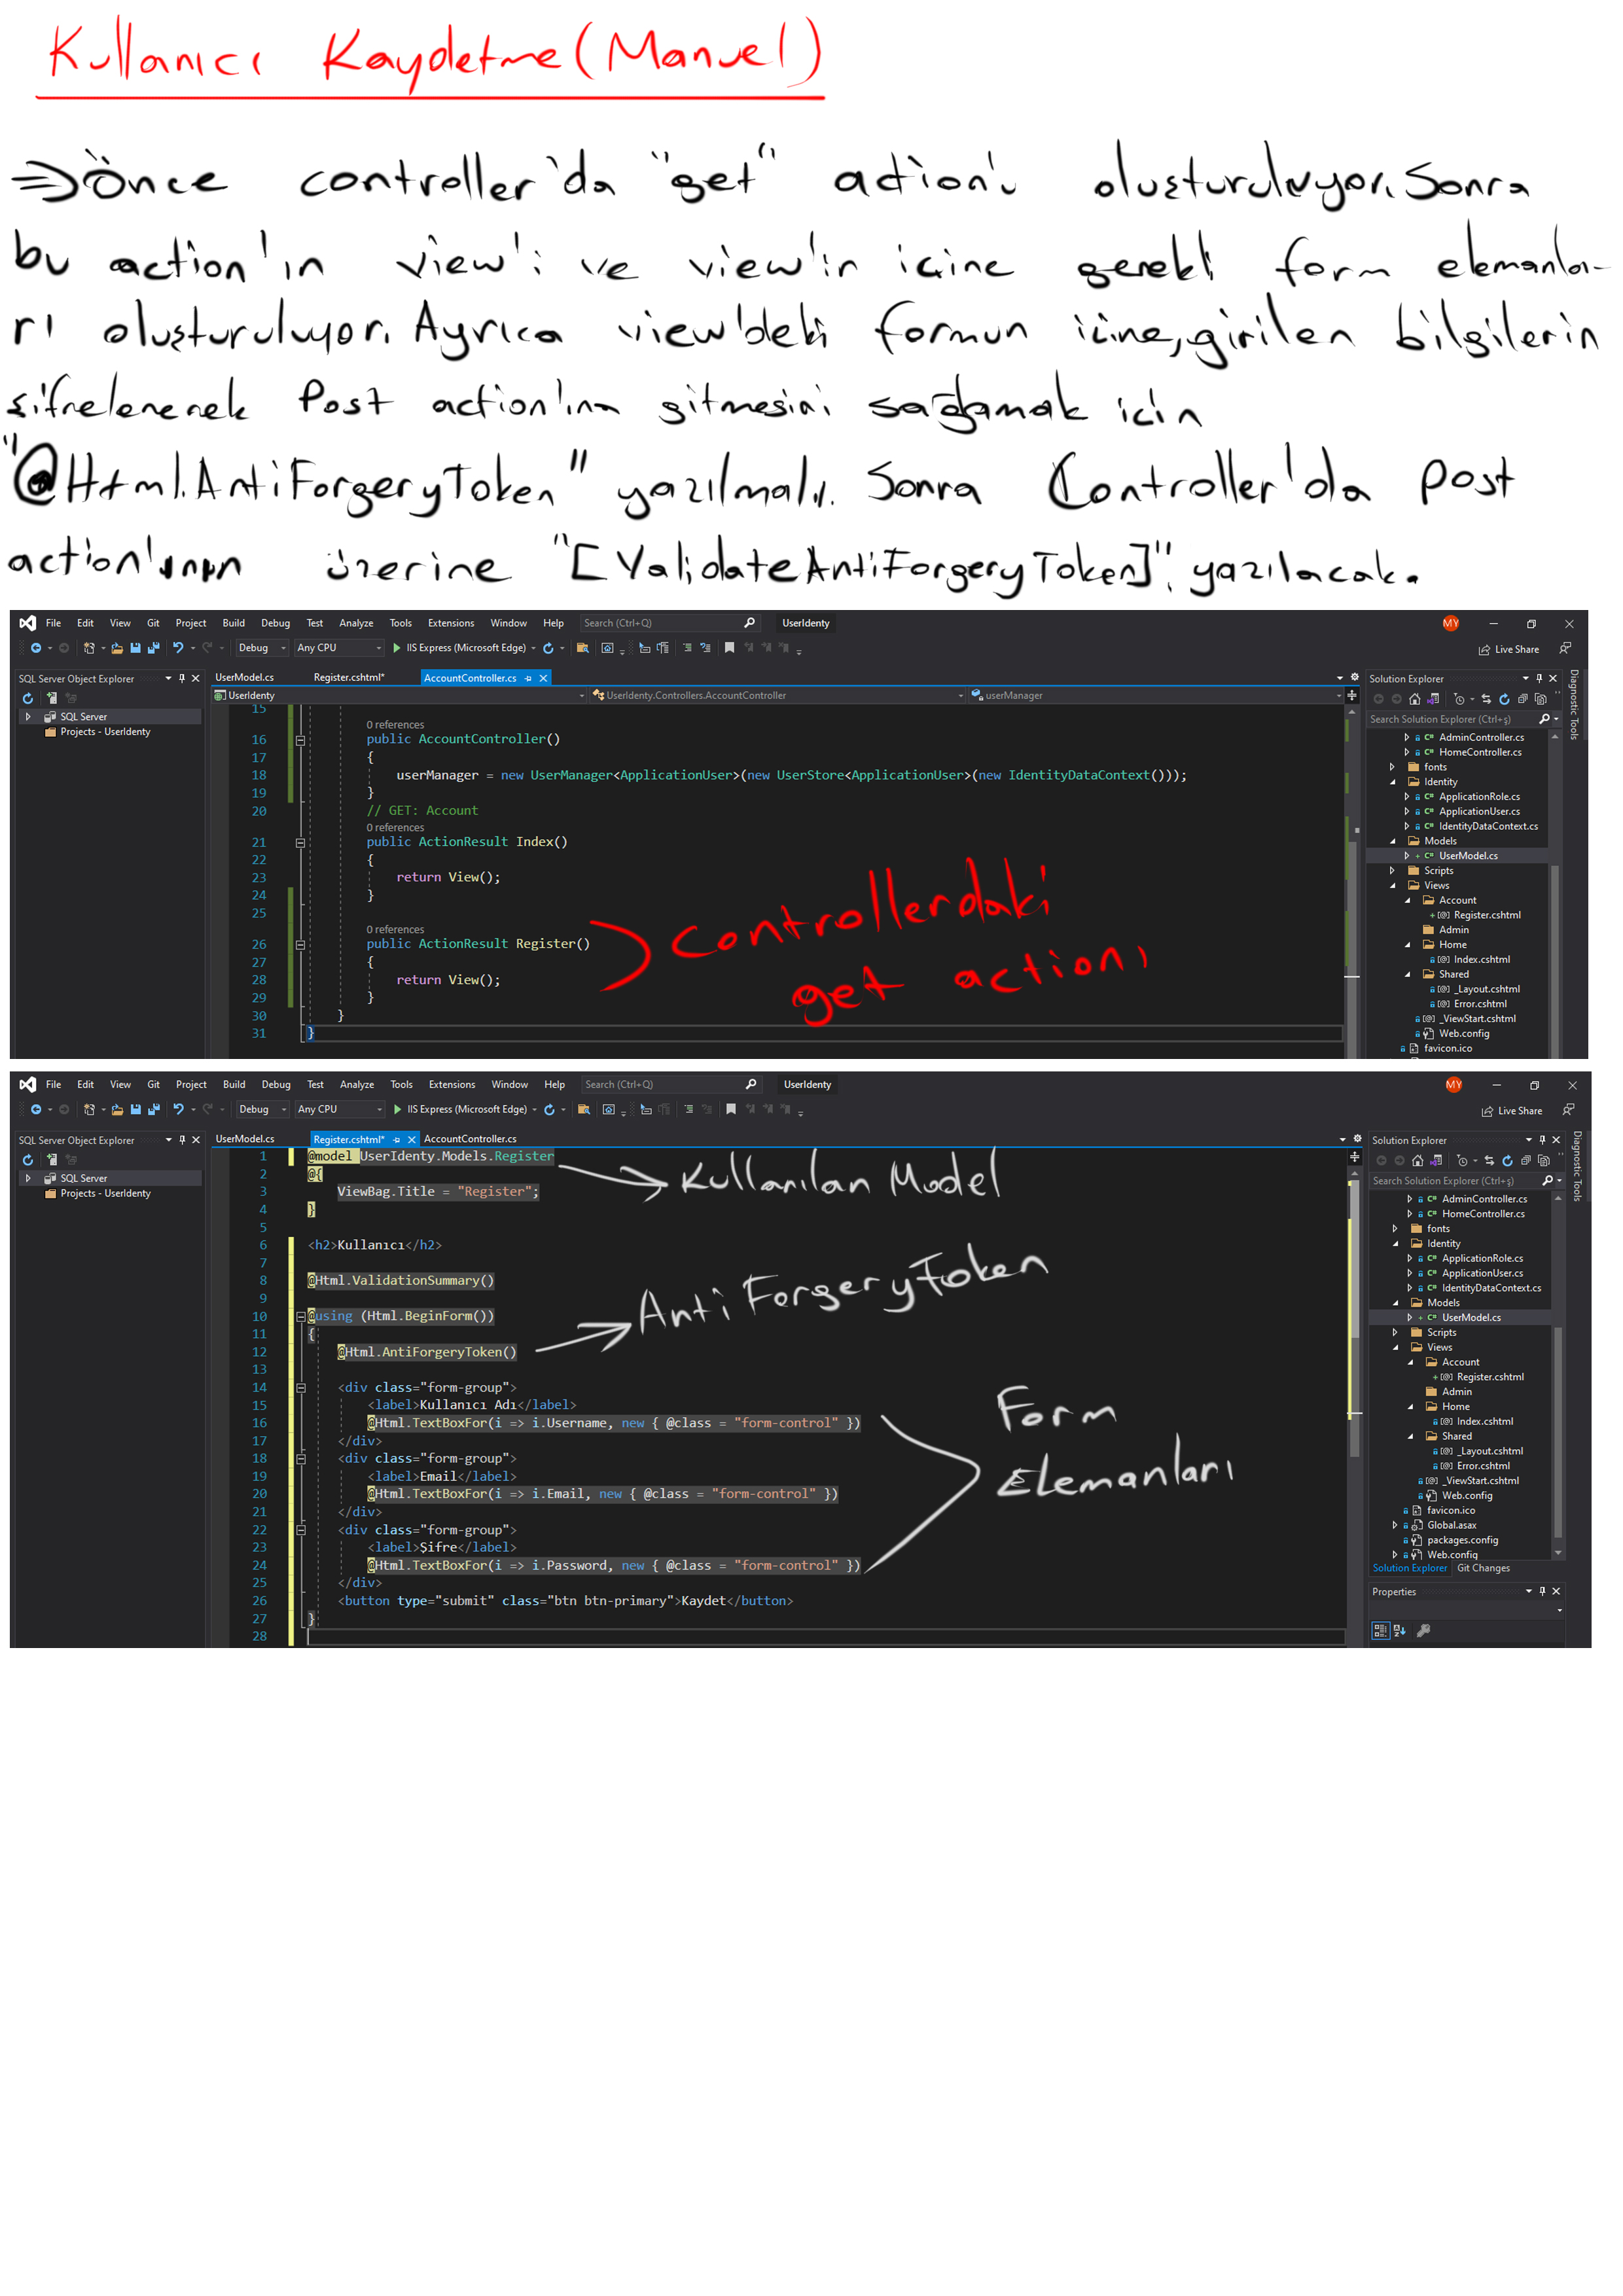 Kullanıcı Kaydetme (Manuel)
⇒ Önce controller'da "get" action'ı oluşturuluyor. Sonra
bu action'ın view'i ve view'in içine gerekli form elemanla-
rı oluşturuluyor. Ayrıca view'deki formun içine, girilen bilgilerin
şifrelenerek Post action'ına gitmesini sağlamak için
"@Html.AntiForgeryToken" yazılmalı. Sonra Controller'da Post
action'ının üzerine "[ValidateAntiForgeryToken]" yazılacak.
File Edit View Git Project Build Debug Test Analyze Tools Extensions Window Help Search (Ctrl+Q) UserIdenty MY
Debug Any CPU IIS Express (Microsoft Edge) Live Share
SQL Server Object Explorer UserModel.cs Register.cshtml* AccountController.cs Solution Explorer Diagnostic Tools
UserIdenty UserIdenty.Controllers.AccountController userManager
SQL Server
Projects - UserIdenty
Search Solution Explorer (Ctrl+ş)
15
0 references
16 public AccountController()
17 {
18 userManager = new UserManager<ApplicationUser>(new UserStore<ApplicationUser>(new IdentityDataContext()));
19 }
20 // GET: Account
0 references
21 public ActionResult Index()
22 {
23 return View();
24 }
25
0 references
26 public ActionResult Register()
27 {
28 return View();
29 }
30 }
31 }
Controllerdaki
get actionı
AdminController.cs
HomeController.cs
fonts
Identity
ApplicationRole.cs
ApplicationUser.cs
IdentityDataContext.cs
Models
UserModel.cs
Scripts
Views
Account
Register.cshtml
Admin
Home
Index.cshtml
Shared
_Layout.cshtml
Error.cshtml
_ViewStart.cshtml
Web.config
favicon.ico
File Edit View Git Project Build Debug Test Analyze Tools Extensions Window Help Search (Ctrl+Q) UserIdenty MY
Debug Any CPU IIS Express (Microsoft Edge) Live Share
SQL Server Object Explorer UserModel.cs Register.cshtml* AccountController.cs Solution Explorer Diagnostic Tools
SQL Server
Projects - UserIdenty
Search Solution Explorer (Ctrl+ş)
1 @model UserIdenty.Models.Register
2 @{
3 ViewBag.Title = "Register";
4 }
5
6 <h2>Kullanıcı</h2>
7
8 @Html.ValidationSummary()
9
10 @using (Html.BeginForm())
11 {
12 @Html.AntiForgeryToken()
13
14 <div class="form-group">
15 <label>Kullanıcı Adı</label>
16 @Html.TextBoxFor(i => i.Username, new { @class = "form-control" })
17 </div>
18 <div class="form-group">
19 <label>Email</label>
20 @Html.TextBoxFor(i => i.Email, new { @class = "form-control" })
21 </div>
22 <div class="form-group">
23 <label>Şifre</label>
24 @Html.TextBoxFor(i => i.Password, new { @class = "form-control" })
25 </div>
26 <button type="submit" class="btn btn-primary">Kaydet</button>
27 }
28
Kullanılan Model
AntiForgeryToken
Form
Elemanları
AdminController.cs
HomeController.cs
fonts
Identity
ApplicationRole.cs
ApplicationUser.cs
IdentityDataContext.cs
Models
UserModel.cs
Scripts
Views
Account
Register.cshtml
Admin
Home
Index.cshtml
Shared
_Layout.cshtml
Error.cshtml
_ViewStart.cshtml
Web.config
favicon.ico
Global.asax
packages.config
Web.config
Solution Explorer Git Changes
Properties